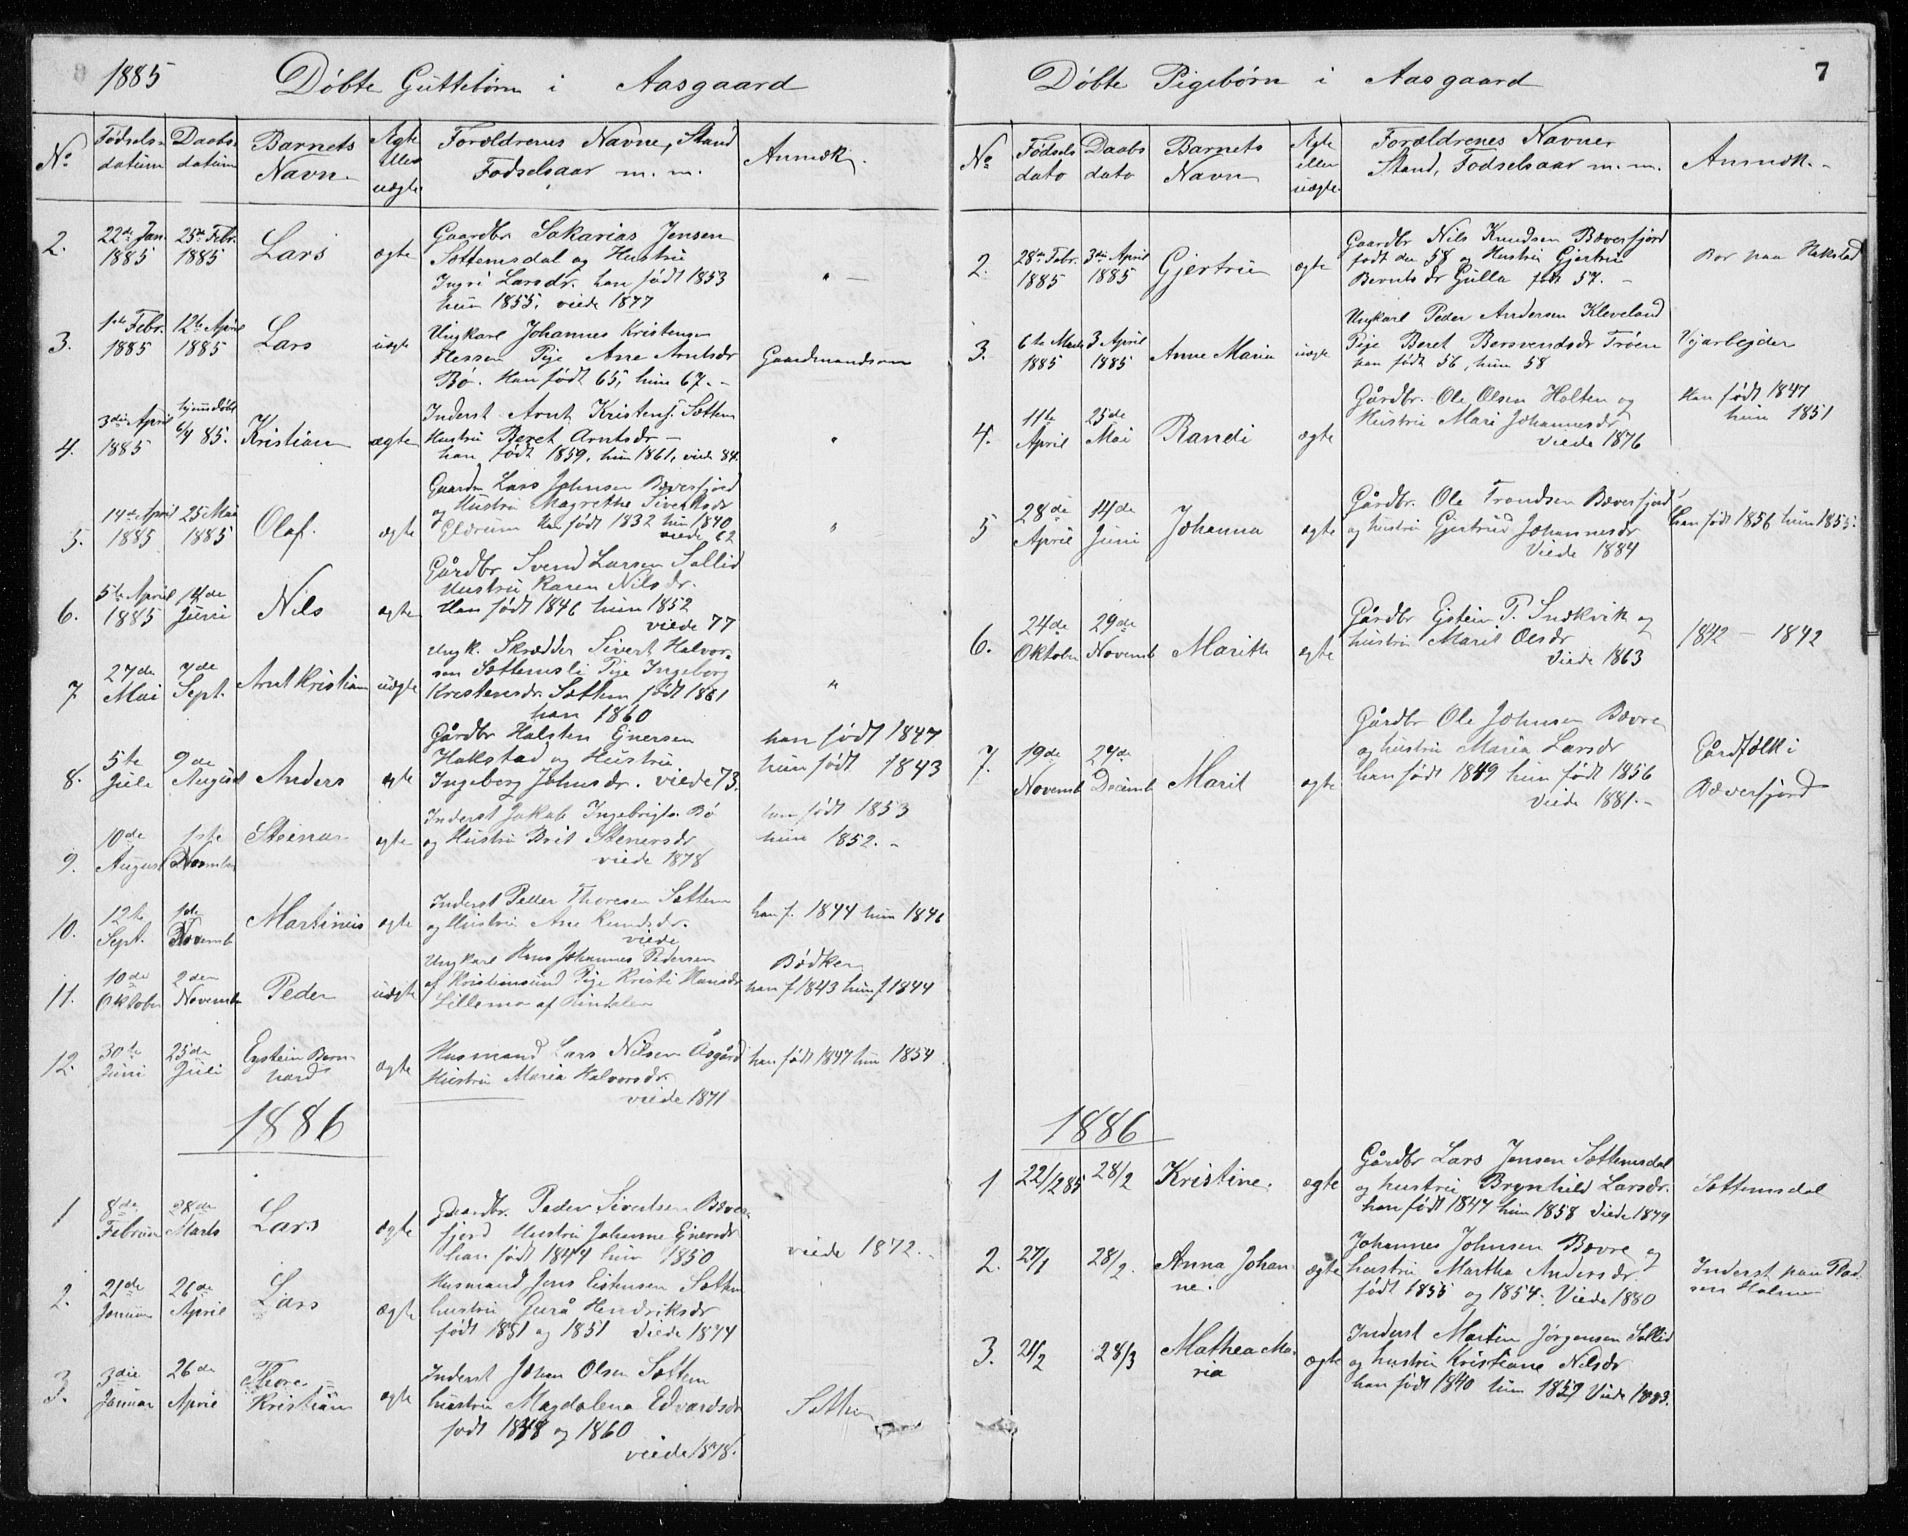 1885 Döbte Guttebørn i Aasgaard
No Fødsels-datum Daabs-datum Barnets Navn Ægte eller uægte Forældrenes Navne, Stand Fødselsaar m. m. Anmærk.
2. 22de Jan. 1885 25de Febr. 1885 Lars ægte Gaardbr. Sakarias Jensen
Sættemsdal og Hustru
Ingri Larsdr. han født 1853
hun 1855, viede 1877 " —
3. 1ste Febr. 1885 12te April 1885 Lars uægte Ungkarl Johannes Kristensen
Flessen Pige Ane Arntsdr
Bø. Han født 65, hun 67. - Gaardmandssøn
4. 3die April 1885 hjemmedøbt 6/4 85. Kristian ægte Inderst Arnt Kristens. Sættem
Hustru Beret Arntsdr —
han født 1859, hun 1861, viede 84. "
5. 14de April 1885 25 Mai 1885 Olaf. ægte Gaardm Lars Johnsen Bæverfjord
og Hustru Magrethe Sivertsdr
Glærum han født 1832 hun 1840
viede 62 "
6. 5te April 1885 14de Juni Nils ægte Gårdbr Svend Larsen Sollid
Hustru Karen Nilsdr.
Han født 1846 hun 1852
viede 77
7 27de Mai 7de Sept. Arnt Kristian uægte Ungk. Skrædder Sivert Halvor-
sen Sættemsli Pige Ingeborg
Kristensdr. Sættem født 1861
han 1860 "
8. 5te Juli 9de August Anders ægte Gårdbr Halsten Ejnersen
Hakstad og Hustru
Ingeborg Johnsdr. viede 73. han født 1847
hun født 1843
9. 10de August 1ste Novemb Steinar ægte Inderst Jakob Ingebrigts. Bø
og Hustru Brit Stenersdr
viede 1878 han født 1853
hun 1852. -
10. 12te Sept. 1de Novemb Martinus ægte Inderst Peder Thoresen Sættem
og Hustru Ane Knudsdr.
viede han f. 1844 hun 1846
11. 10de Oktober 2den Novemb Peder uægte Ungkarl Hans Johannes Pedersen
af Kristiansund Pige Kristi Hansdr
Lillemo af Rindalen Bødker
han f 1843 hun f 1844
12. 30te Juni 25de Juli Eystein Bern-
hard ægte Husmand Lars Nilsen Åsgård
Hustru Maria Halvorsdr.
viede 1871 han født 1847 hun 1854
1886
1 8de Februar 28de Marts Lars ægte Gaardbr. Peder Sivertsen Bæver-
fjord Hustru Johanne Ejnersdr
han født 1844 hun 1850 viede 1872. -
2. 21de Januar 26de April Lars ægte Husmand Jens Eistensen Sættem
hustru Gurå Hendriksdr
født 1851 og 1851 Viede 1874
3. 3die Januar 26de April Thore
Kristian ægte Inderst Johan Olsen Sættem
hustru Magdalena Edvardsdr
født 1848 og 1860
viede 1878. Sættem
Döbte Pigebørn i Aasgaard 7
No Fødsels dato Daabs dato Barnets Navn Ægte eller uægte Forældrenes Navner Stand, Fødselsaar m. m. Anmærk. -
2. 28de Febr. 1885 3die April 1885 Gjertru ægte Gaardbr Nils Knudsen Bæverfjord
født den 58 og Hustru Gjertru
Berntsdr Gulla født 57. - Bor paa Hakstad
3. 6te Marts 1885 3 April 1885 Anne Maria uægte Ungkarl Peder Andersen Kleveland
Pige Beret Bersvendsdr Trøen
han født 56, hun 58 Vejarbejder
4. 11te April 25de Mai Randi ægte Gårdbr. Ole Olsen Holten og
Hustru Mari Johannesdr
viede 1876 Han født 1847
hun 1851
5 28de April 14de Juni Johanna ægte Gårdbr. Ole Trondsen Bæverfjord
og hustru Gjertrud Johannesdr
Viede 1884 han født 1856 hun 1855.
6. 24de Oktober 29de Novemb Marith ægte Gårdbr Ejstein P. Snekvik og
hustru Marit Olsdr
Viede 1863 1842 — 1842
7. 19de Novemb 27de Decemb Marit ægte Gårdbr Ole Johnsen Bævre
og hustru Maria Larsdr
han født 1849 hun født 1856
Viede 1881. - Gårdfolk i
Bæverfjord
1886
1 22/12 85 28/2 Kristine. ægte Gårdbr Lars Jensen Sættemsdal
og hustru Brynhild Larsdr.
han født 1847 hun 1858 Viede 1879 Sættemsdal
2. 27/1 28/2. Anna Johan-
ne. ægte Johannes Johnsen Bævre og
hustru Martha Andersdr
født 1855 og 1854. Viede 1880 Inderst paa
3. 21/2 28/3 Mathea Ma-
ria ægte Inderst Martin Jørgensen Sollid
og hustru Kristiane Nilsdr
han født 1840 hun 1859 Viede 1883.